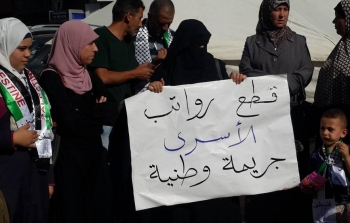 PALESTINE
قطع رواتب
الأسرى
جريمة وطنية